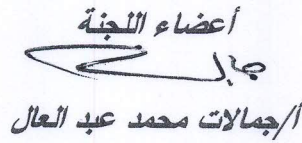 أعضاء اللجنة
أ/جمالات محمد عبد العال